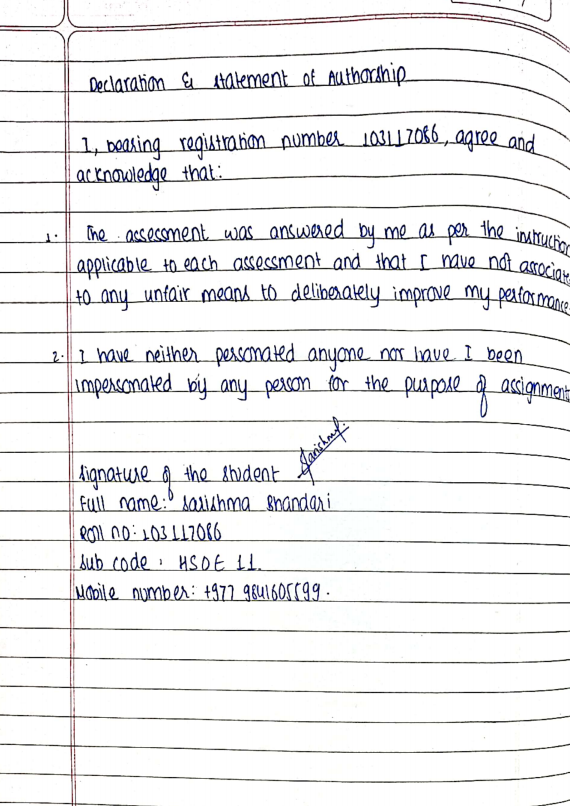 Declaration & statement of Authorship
I, bearing registration number 103117086, agree and
acknowledge that:
1. The assessment was answered by me as per the instruction
applicable to each assessment and that I have not associate
to any unfair means to deliberately improve my performance
2. I have neither personated anyone nor have I been
impersonated by any person for the purpose of assignment
Sarishma.
signature of the student
Full name: Sarishma Bhandari
Roll no: 103117086
Sub code : HSOE 11.
Mobile number: +977 9841605599.